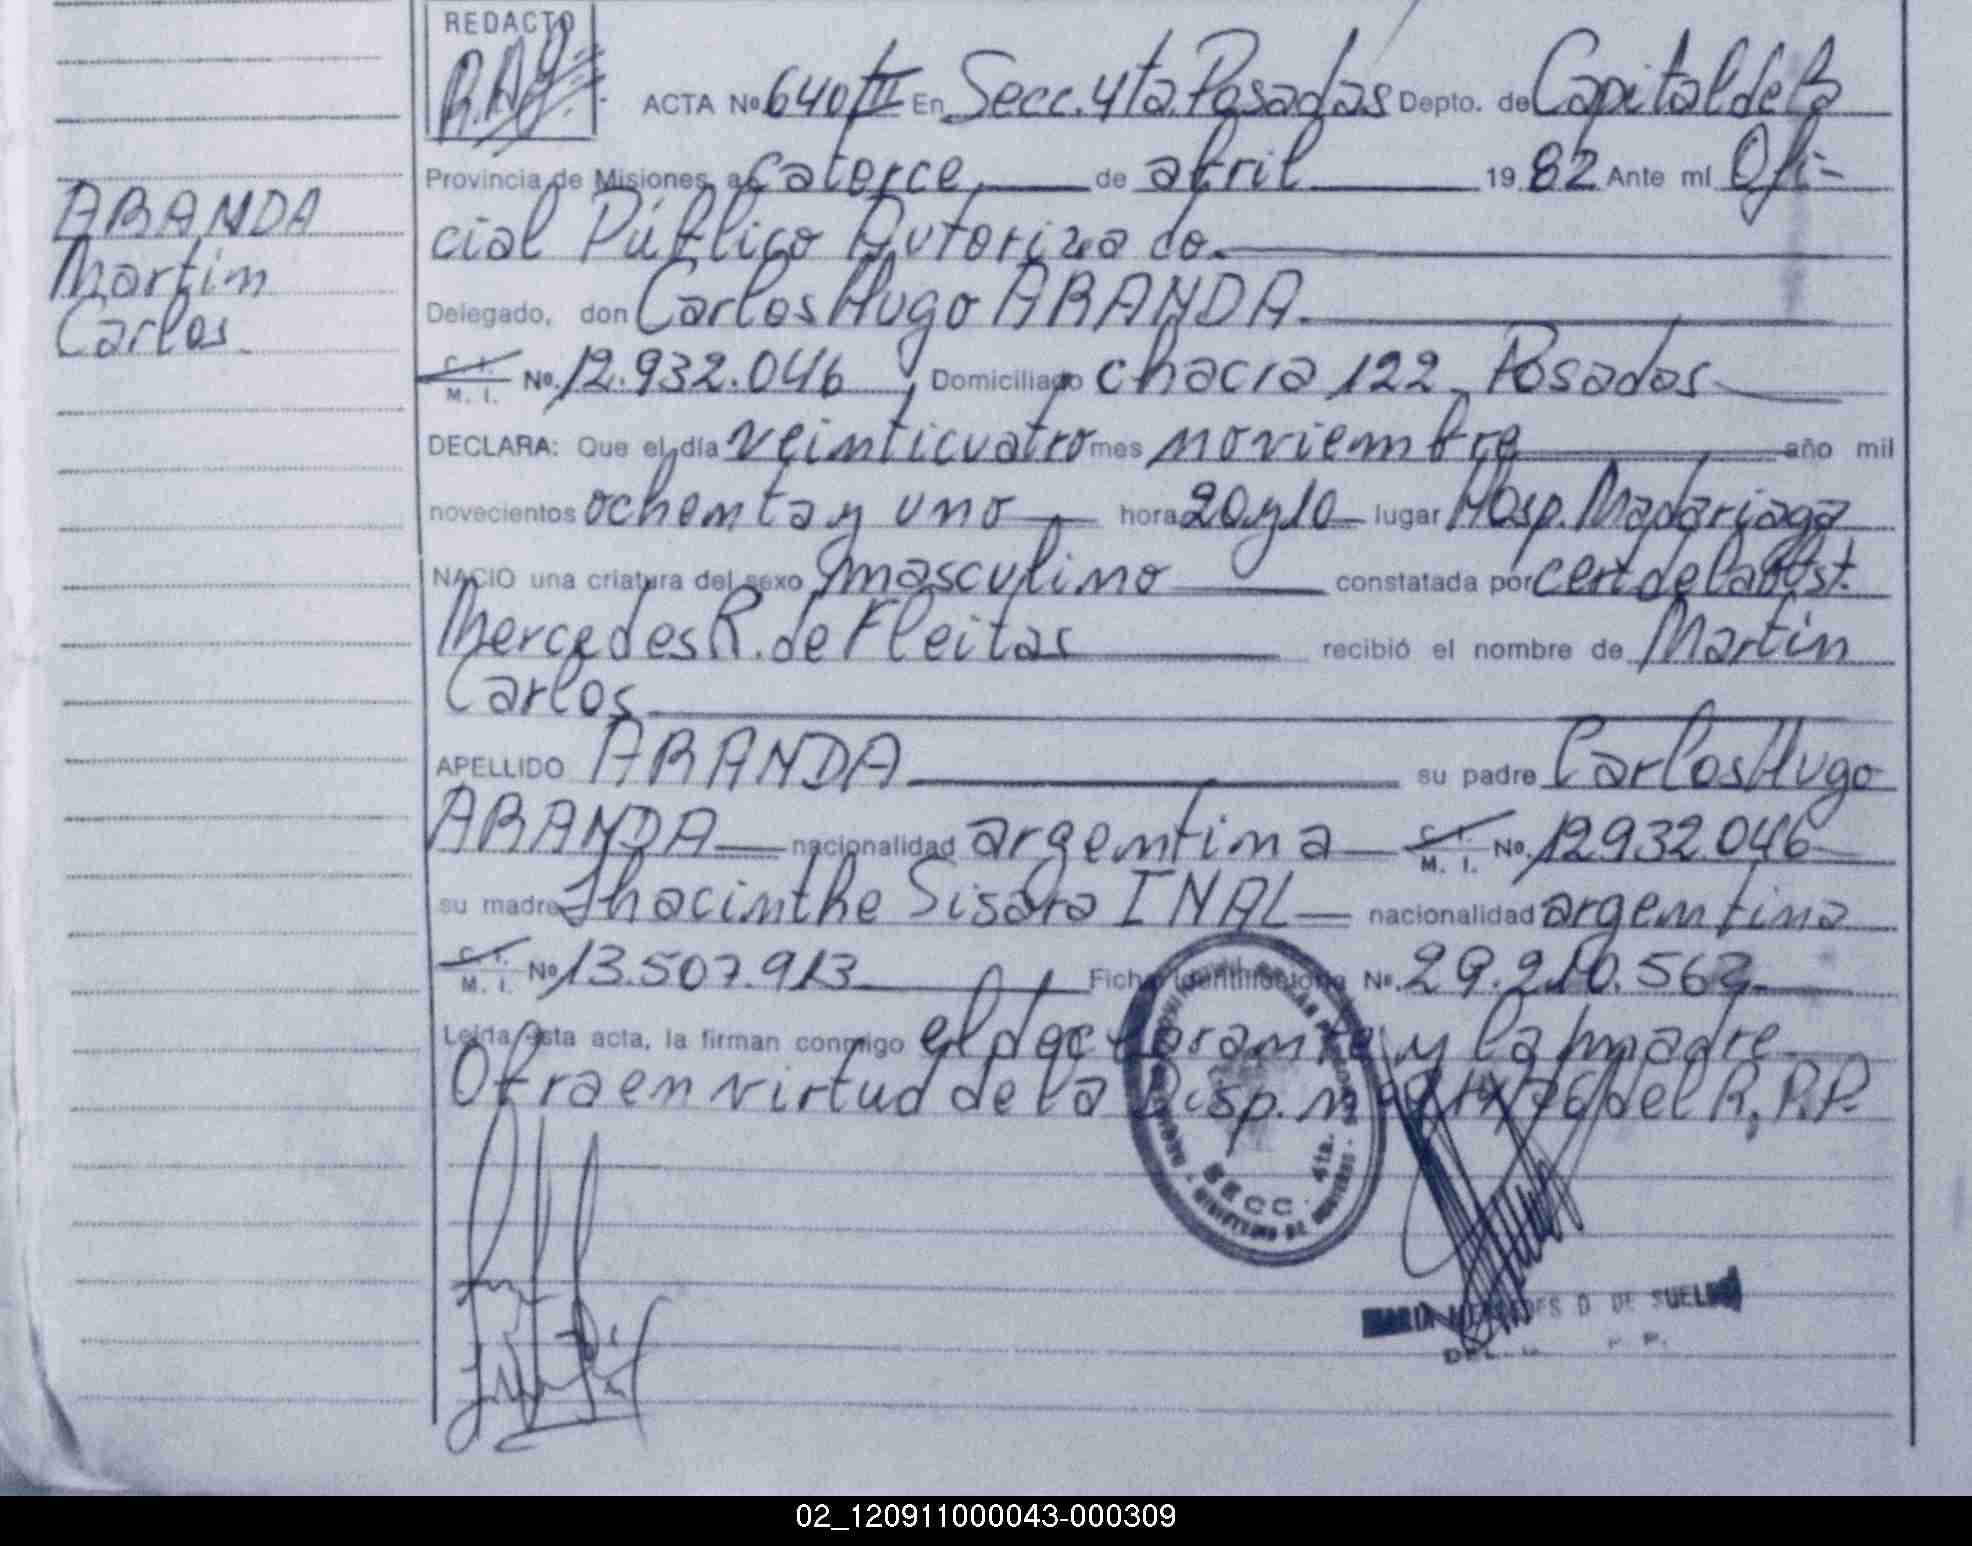 REDACTO
ACTA Nº 640 III En Secc. 4ta. Posadas Depto. de Capital de la
Provincia de Misiones, a catorce de abril 19 82 Ante mi Ofi-
cial Público Autorizado.
Delegado, don Carlos Hugo ARANDA.
C. I. M. I. Nº. 12.932.046, Domiciliado chacra 122 - Posadas
DECLARA: Que el día veinticuatro mes noviembre año mil
novecientos ochenta y uno hora 20 y 10 lugar Hosp. Madariaga
NACIO una criatura del sexo masculino constatada por cert de la obst.
Mercedes R. de Fleitas recibió el nombre de Martin
Carlos
APELLIDO ARANDA su padre Carlos Hugo
ARANDA nacionalidad argentina C. I. M. I. Nº. 12.932.046
su madre Jhacinthe Sisara INAL nacionalidad argentina
C. I. M. I. Nº 13.507.913 Ficha Identificatoria Nº. 29.210.562
Leída esta acta, la firman conmigo el declarante y la madre.
Obra en virtud de la Disp. nº 14/76 del R.P.P.
ARANDA
Martin
Carlos
SECC. 4ta.
MARIA MERCEDES D. DE SUELDO
02_120911000043-000309